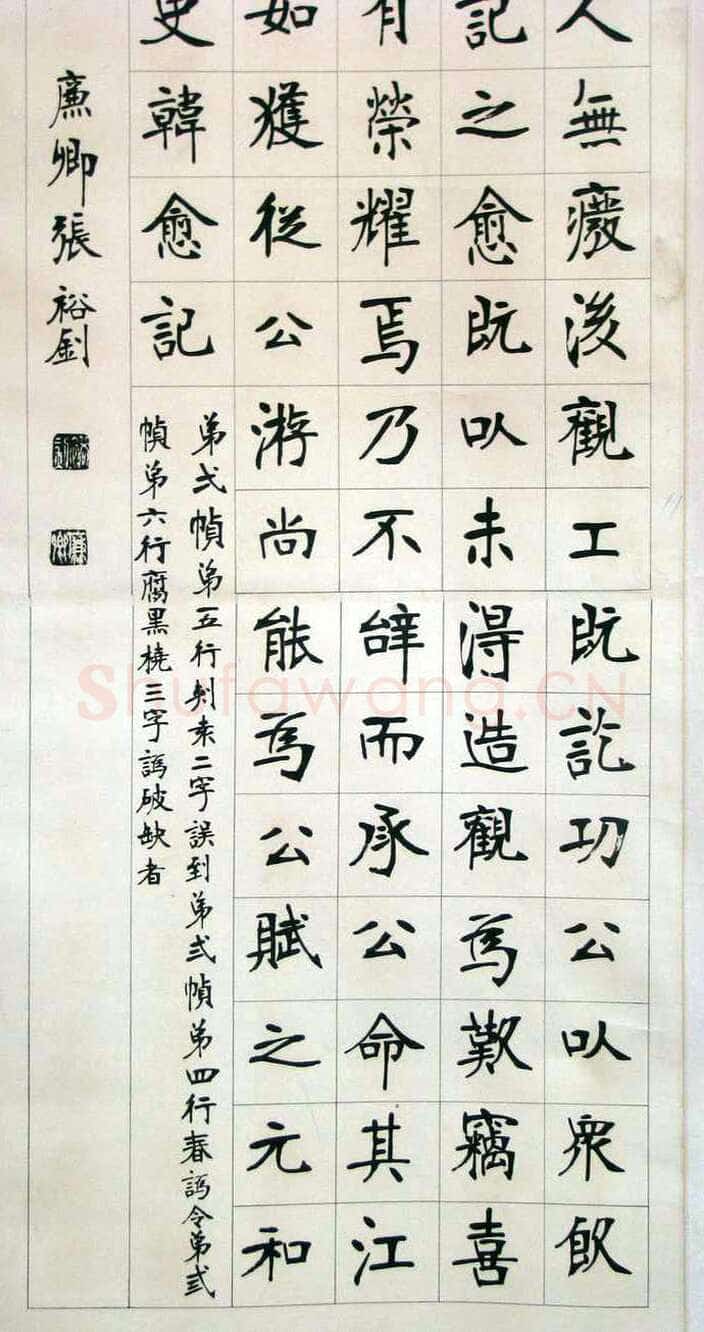 人無癈後觀工既訖功公以衆飲
記之愈既以未得造觀為歎竊喜
有榮耀焉乃不辭而承公命其江
如獲從公游尚能為公賦之元和
史韓愈記
弟弍幀弟五行刾袁二字誤到弟弍幀弟四行春譌令弟弍
幀弟六行腐黑橈三字譌破缺者
廉卿張裕釗
Shufawang.CN